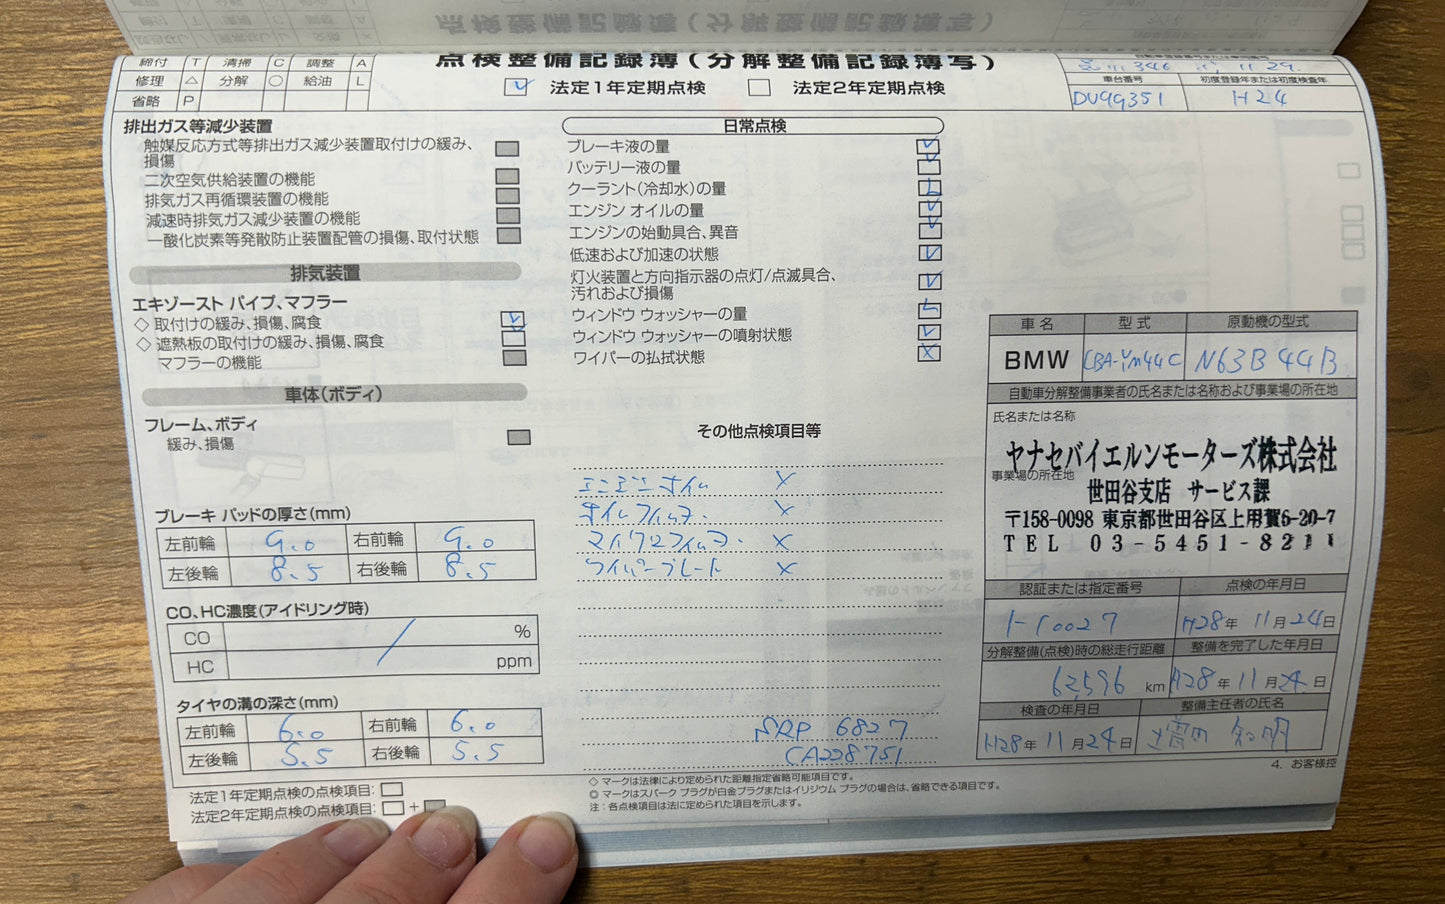 点検整備記録簿(分解整備記録簿写)
締付 T 清掃 C 調整 A
修理 △ 分解 ○ 給油 L
省略 P
✓ 法定1年定期点検 法定2年定期点検
車台番号 初度登録年または初度検査年
DV99351 H24
排出ガス等減少装置
触媒反応方式等排出ガス減少装置取付けの緩み、
損傷
二次空気供給装置の機能
排気ガス再循環装置の機能
減速時排気ガス減少装置の機能
一酸化炭素等発散防止装置配管の損傷、取付状態
排気装置
エキゾースト パイプ、マフラー
◇ 取付けの緩み、損傷、腐食 ✓
◇ 遮熱板の取付けの緩み、損傷、腐食 ✓
マフラーの機能
車体(ボディ)
フレーム、ボディ
緩み、損傷
ブレーキ パッドの厚さ(mm)
左前輪 9.0 右前輪 9.0
左後輪 8.5 右後輪 8.5
CO、HC濃度(アイドリング時)
CO %
HC ppm
タイヤの溝の深さ(mm)
左前輪 6.0 右前輪 6.0
左後輪 5.5 右後輪 5.5
法定1年定期点検の点検項目:
法定2年定期点検の点検項目: +
日常点検
ブレーキ液の量 ✓
バッテリー液の量 ✓
クーラント(冷却水)の量 L
エンジン オイルの量 ✓
エンジンの始動具合、異音 ✓
低速および加速の状態 ✓
灯火装置と方向指示器の点灯/点滅具合、 ✓
汚れおよび損傷
ウィンドウ ウォッシャーの量 L
ウィンドウ ウォッシャーの噴射状態 ✓
ワイパーの払拭状態 X
その他点検項目等
エンジンオイル X
オイルフィルター X
マイクロフィルター X
ワイパーブレード X
SRP 6827
CA228751
◇ マークは法律により定められた距離指定省略可能項目です。
◎ マークはスパーク プラグが白金プラグまたはイリジウム プラグの場合は、省略できる項目です。
注：各点検項目は法に定められた項目を示します。
車名 型式 原動機の型式
BMW CBA-YM44C N63B44B
自動車分解整備事業者の氏名または名称および事業場の所在地
氏名または名称
ヤナセバイエルンモーターズ株式会社
事業場の所在地
世田谷支店 サービス課
〒158-0098 東京都世田谷区上用賀6-20-7
TEL 03-5451-8211
認証または指定番号 点検の年月日
1-10027 H28年 11月24日
分解整備(点検)時の総走行距離 整備を完了した年月日
62,596 km H28年 11月24日
検査の年月日 整備主任者の氏名
H28年 11月24日
4. お客様控